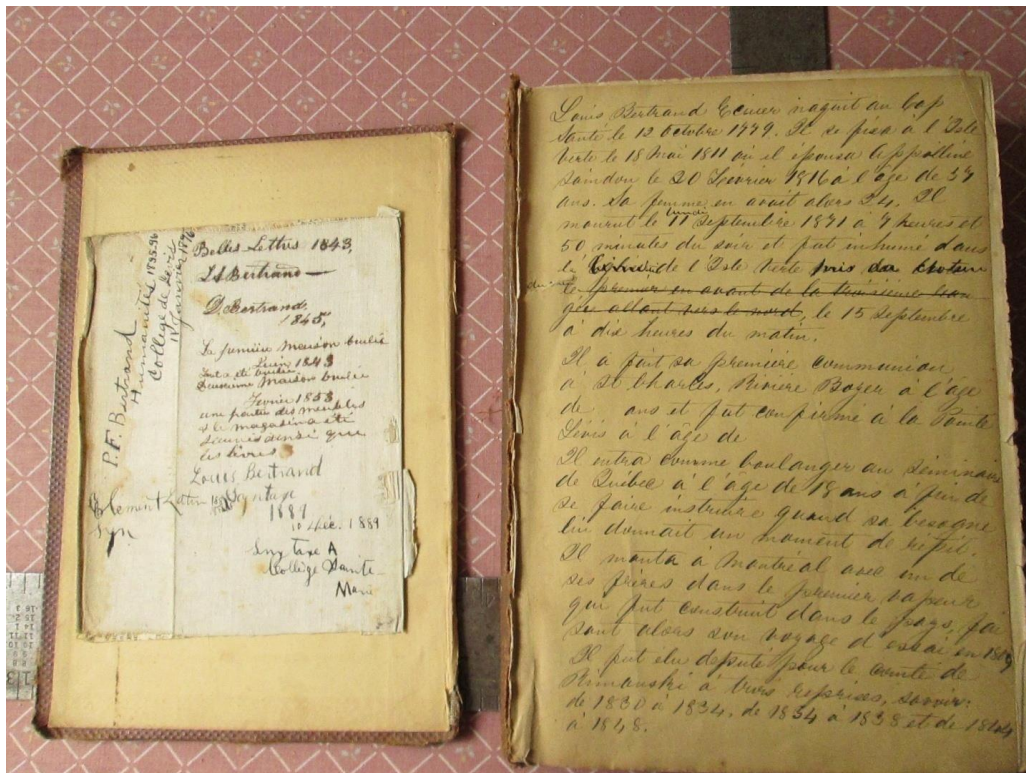 Belles Lettres 1843,
Ls Bertrand
D. Bertrand
1845,
La première maison brulée
Juin 1843
Deuxième maison brulée
Février 1853
une partie des meubles
et le magasin a été
ainsi que
les livres
Louis Bertrand
1889
10 Déc. 1889
Syntaxe A
Collège Sainte-
Marie
P. F. Bertrand
Humanités 1895-96
Collège de Lévis
19 janvier 1896
Element
Syn
Louis Bertrand Ecuier naquit au Cap
Santé le 12 Octobre 1779. Il se fixa à l'Isle
Verte le 18 Mai 1811 où il épousa Appolline
Saindon le 20 Février 1816 à l'âge de 37
ans. Sa femme en avait alors 24. Il
mourut le lundi 11 Septembre 1871 à 7 heures et
50 minutes du soir et fut inhumé dans
de l'Isle Verte près du
premier en avant de la troisième
allant vers le nord, le 15 Septembre
à dix heures du matin.
Il a fait sa première communion
à St Charles, Rivière Boyer à l'âge
de ans et fut confirmé à la Pointe
Lévis à l'âge de
Il entra comme boulanger au Séminaire
de Québec à l'âge de 18 ans à fin de
se faire instruire quand sa besogne
lui donnait un moment de répit
Il monta à Montréal avec un de
ses frères dans le premier vapeur
qui fut construit dans le pays, fai
sant alors son voyage d'essai en 1809
Il fut élu député pour le comté de
Rimouski à trois reprises, savoir:
de 1830 à 1834, de 1834 à 1838 et de 1844
à 1848.